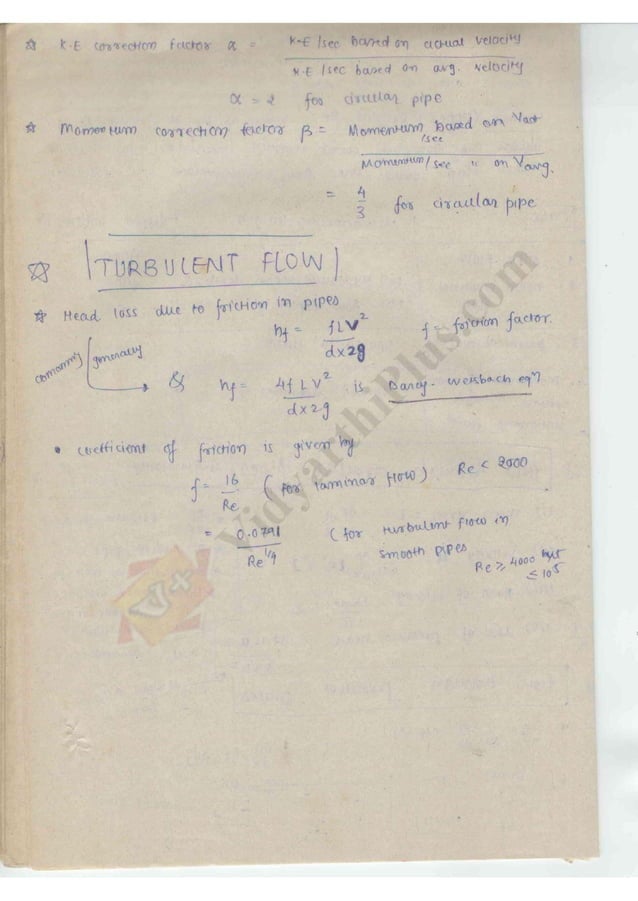 ☆ K.E correction factor α = K.E /sec based on actual velocity / K.E /sec based on avg. velocity
α = 2 for circular pipe
☆ Momentum correction factor β = Momentum /sec based on Vact / Momentum/sec " on Vavg.
= 4/3 for circular pipe
☆ |TURBULENT FLOW|
☆ Head loss due to friction in pipes
hf = fLV²/d×2g f = friction factor.
commonly generally
& hf = 4fLV²/d×2g is Darcy-Weisbach eqn
• coefficient of friction is given by
f = 16/Re (for laminar flow) Re < 2000
= 0.0791/Re^1/4 (for turbulent flow in
smooth pipes Re ≥ 4000 but
≤ 10⁵
VidyarthiPlus.com
V+